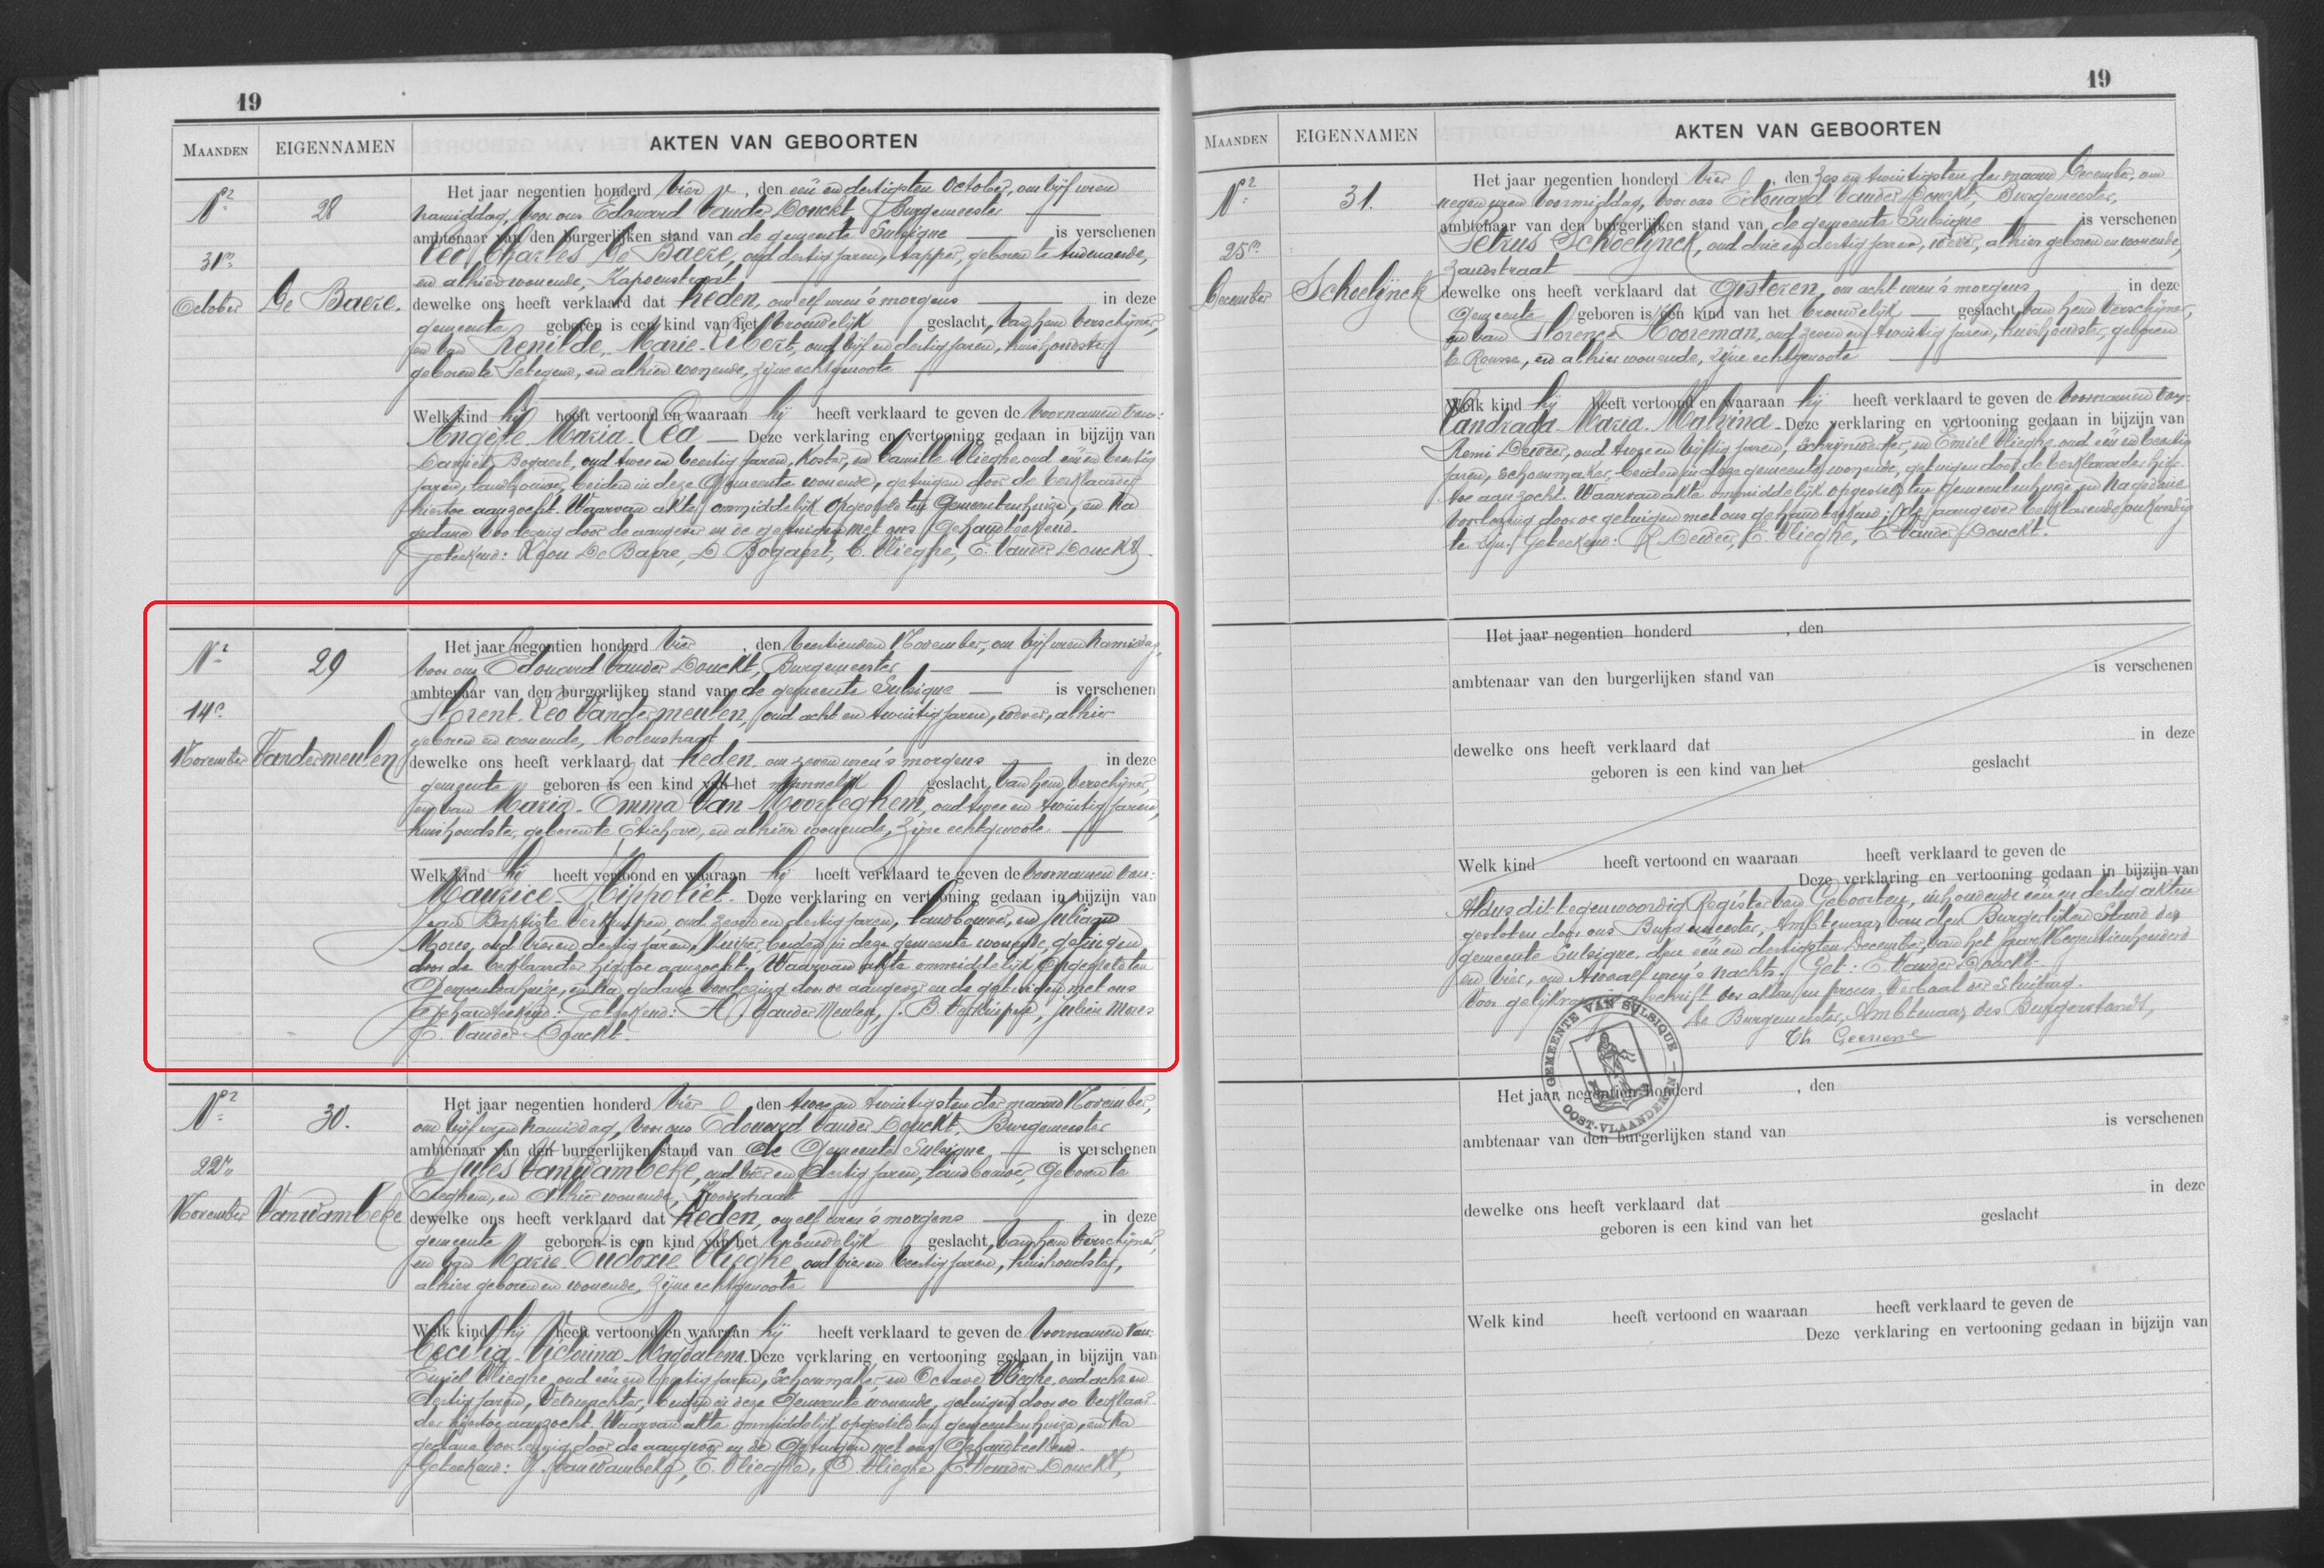 19
MAANDEN EIGENNAMEN AKTEN VAN GEBOORTEN
Nr 28
31n
October De Baere.
Het jaar negentien honderd vier, den een en dertigsten October, om vijf uren
namiddag, voor ons Edouard Vander Donckt, Burgemeester
ambtenaar van den burgerlijken stand van de gemeente Sulsique is verschenen
Leo Charles De Baere, oud dertig jaren, tapper, geboren te Audenaarde,
en alhier wonende, Kapoenstraat
dewelke ons heeft verklaard dat heden, om elf uren 's morgens in deze
gemeente geboren is een kind van het vrouwelijk geslacht, van hem verschijner,
en van Renilde Marie Libert, oud vijf en dertig jaren, huishoudster,
geboren te Petegem, en alhier wonende, zijne echtgenoote
Welk kind hij heeft vertoond en waaraan hij heeft verklaard te geven de voornamen van:
Angèle Maria Lea Deze verklaring en vertooning gedaan in bijzijn van
Daniel Bogaert, oud twee en veertig jaren, Koster, en Camille Vlieghe oud een en veertig
jaren, landbouwer, beiden in deze Gemeente wonende, getuigen door de verklaarder
hiertoe aanzocht. Waarvan akte, onmiddelijk opgesteld ten Gemeentenhuize, en na
gedane voorlezing door de aangever en de getuigen met ons gehandteekend.
Geteekend: Leon De Baere, D. Bogaert, C. Vlieghe, E. Vander Donckt
Nr 29
14e
November Vandermeulen
Het jaar negentien honderd vier, den veertienden November, om vijf uren namiddag,
voor ons Edouard Vander Donckt, Burgemeester
ambtenaar van den burgerlijken stand van de gemeente Sulsique is verschenen
Florent Leo Vandermeulen, oud acht en twintig jaren, wever, alhier
geboren en wonende, Molenstraat
dewelke ons heeft verklaard dat heden, om zeven uren 's morgens in deze
gemeente geboren is een kind van het mannelijk geslacht, van hem verschijner,
en van Maria Emma Van Moorleghem, oud twee en twintig jaren,
huishoudster, geboren te Etichove, en alhier wonende, zijne echtgenoote.
Welk kind hij heeft vertoond en waaraan hij heeft verklaard te geven de voornamen van:
Maurice Hippoliet. Deze verklaring en vertooning gedaan in bijzijn van
Jean Baptiste Verkuippen, oud zeven en dertig jaren, landbouwer, en Juliaan
Mores, oud vier en dertig jaren, kuiper, beiden in deze gemeente wonende, getuigen
door de verklaarder hiertoe aanzocht. Waarvan akte onmiddelijk opgesteld ten
Gemeentenhuize, en na gedane voorlezing door de aangever en de getuigen met ons
gehandteekend: Geteekend: Vander Meulen, J. B. Verkuippen, Julien Mores
E. Vander Donckt.
Nr 30.
22n
November Vanwambeke
Het jaar negentien honderd vier den twee en twintigsten der maand November,
om vijf uren namiddag, voor ons Edouard Vander Donckt, Burgemeester
ambtenaar van den burgerlijken stand van de Gemeente Sulsique, is verschenen
Jules Vanwambeke, oud vier en dertig jaren, landbouwer, geboren te
en alhier wonende,
dewelke ons heeft verklaard dat heden, om elf uren 's morgens in deze
gemeente geboren is een kind van het vrouwelijk geslacht, van hem verschijner,
en van Marie Eudoxie Vlieghe, oud vier en veertig jaren, huishoudster,
alhier geboren en wonende, zijne echtgenoote
Welk kind hij heeft vertoond en waaraan hij heeft verklaard te geven de voornamen van:
Cecilia Victorina Magdalena. Deze verklaring en vertooning gedaan in bijzijn van
Emiel Vlieghe, oud een en veertig jaren, schoenmaker en Octave Vlieghe oud acht en
dertig jaren, Veldwachter, beiden in deze Gemeente wonende, getuigen door de verklaar-
der hiertoe aanzocht. Waarvan akte onmiddelijk opgesteld ten gemeentenhuize, en na
gedane voorlezing door de aangever en de getuigen met ons gehandteekend.
Geteekend: J. Vanwambeke, E. Vlieghe, O. Vlieghe E. Vander Donckt,
19
MAANDEN EIGENNAMEN AKTEN VAN GEBOORTEN
Nr 31.
25n
December Schoelynck
Het jaar negentien honderd vier, den zes en twintigsten der maand December, om
negen uren voormiddag, voor ons Edouard Vander Donckt, Burgemeester,
ambtenaar van den burgerlijken stand van de gemeente Sulsique is verschenen
Petrus Schoelynck, oud drie en dertig jaren, wever, alhier geboren en wonende,
Zandstraat
dewelke ons heeft verklaard dat gisteren, om acht uren 's morgens in deze
Gemeente geboren is een kind van het vrouwelijk geslacht, van hem verschijner,
en van Florence Hooreman, oud zeven en twintig jaren, huishoudster, geboren
te Ronsse, en alhier wonende, zijne echtgenoote
Welk kind hij heeft vertoond en waaraan hij heeft verklaard te geven de voornamen van:
Landrada Maria Malvina. Deze verklaring en vertooning gedaan in bijzijn van
Remi Deweer, oud twee en vijftig jaren, schrijnwerker, en Emiel Vlieghe oud een en veertig
jaren, schoenmaker, beiden in deze gemeente wonende, getuigen door de verklaarder hier-
toe aanzocht. Waarvan akte onmiddelijk opgesteld ten gemeentenhuize en na gedane
voorlezing door de getuigen met ons gehandteekend; de aangever verklarende onkundig
te zijn. Geteekend: R. Deweer, E. Vlieghe, E. Vander Donckt.
Het jaar negentien honderd , den
is verschenen
ambtenaar van den burgerlijken stand van
in deze
dewelke ons heeft verklaard dat
geboren is een kind van het geslacht
Welk kind heeft vertoond en waaraan heeft verklaard te geven de
Deze verklaring en vertooning gedaan in bijzijn van
Aldus dit tegenwoordig Register van Geboorten, inhoudende een en dertig akten
gesloten door ons Burgemeester, Ambtenaar van den Burgerlijken Stand der
gemeente Sulsique, den een en dertigsten December van het jaar Negentienhonderd
en vier, om twaalf uren 's nachts. Get: E. Vander Donckt.
Voor gelijkvormig afschrift der akten en proces-verbaal der sluiting.
De Burgemeester, Ambtenaar des Burgerstands,
GEMEENTE VAN SULSIQUE
OOST-VLAANDEREN
Het jaar negentien honderd , den
is verschenen
ambtenaar van den burgerlijken stand van
in deze
dewelke ons heeft verklaard dat
geboren is een kind van het geslacht
Welk kind heeft vertoond en waaraan heeft verklaard te geven de
Deze verklaring en vertooning gedaan in bijzijn van